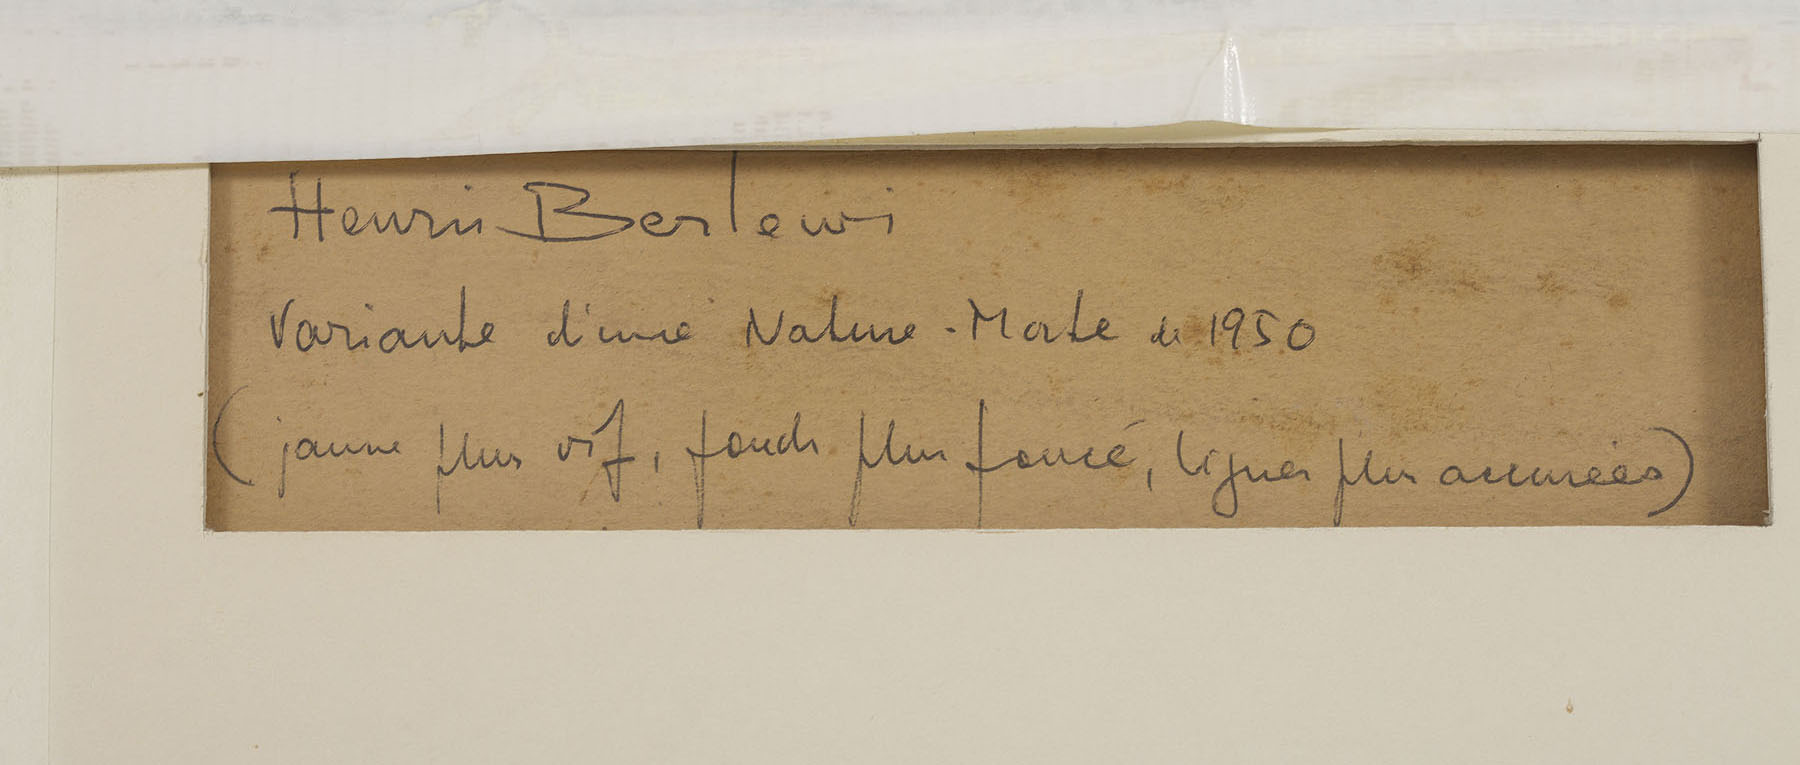 Henri Berlewi
Variante d'une Nature-Morte de 1950
(jaune plus vif, fonds plus foncé, lignes plus accusées)